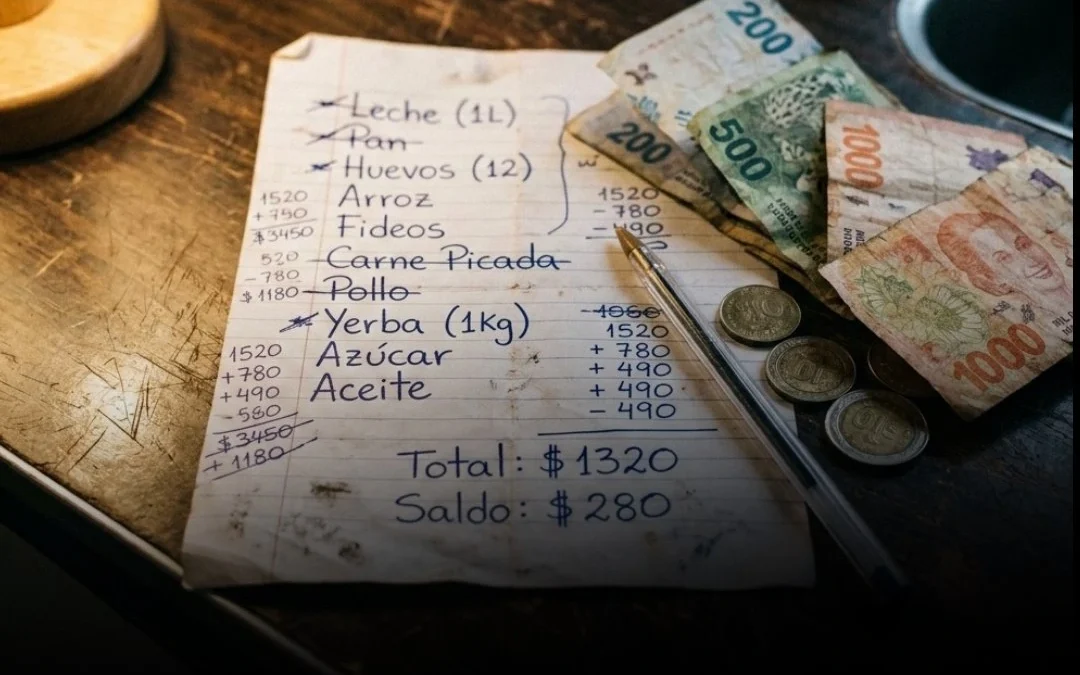 Leche (1L)
Pan
Huevos (12)
Arroz
Fideos
Carne Picada
Pollo
Yerba (1Kg)
Azúcar
Aceite
1520
+ 750
$3450
520
-780
$1180
1520
+780
+490
-580
$3450
+ 1180
1520
- 780
- 190
1520
+ 780
+ 490
+ 490
- 490
Total: $1320
Saldo: $280
200
200
500
1000
1000